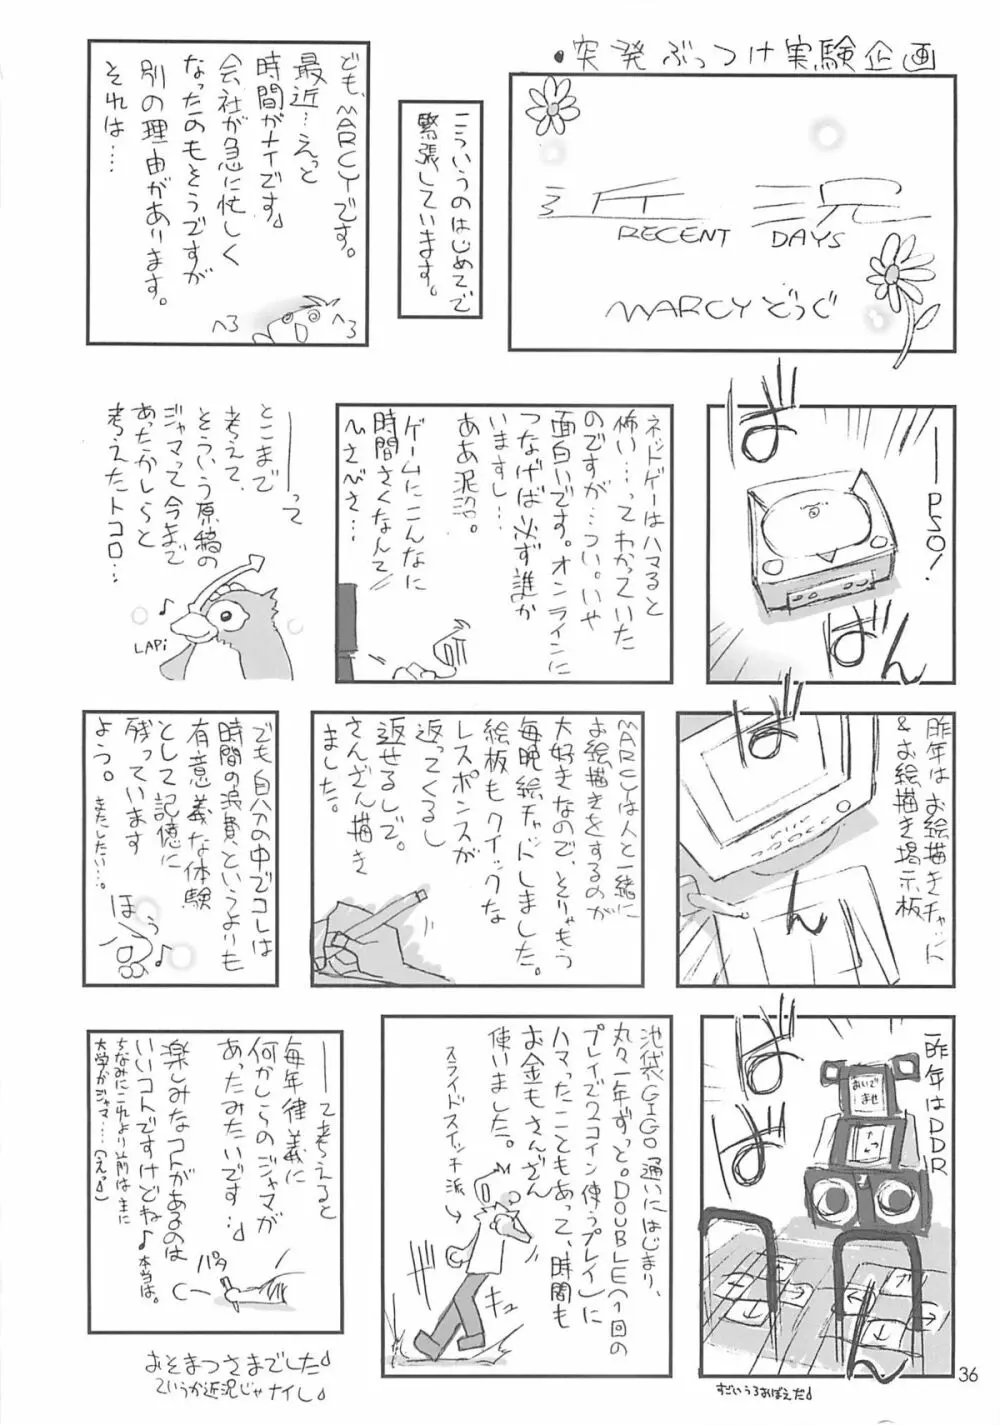 ・突発ぶっつけ実験企画
近況
RECENT DAYS
MARCYどうぐ
こういうのはじめてで
緊張しています。
ども、MARCYです。
最近…えっと
時間がナイです。
会社が急に忙しく
なったのもそうですが
別の理由があります。
それは…
へろ
へろ
ばばん
――PSO!
ネットゲーはハマると
怖い…ってわかっていた
のですが…つい。いや
面白いです。オンラインに
つなげば必ず誰か
いますし…
ああ泥沼。
ゲームにこんなに
時間さくなんて
いさびさ…
――って
とこまで
考えて、
そういう原稿の
ジャマって今まで
あったかしらと
考えたトコロ…
♪
LAPi
昨年はお絵描きチャット
&お絵描き掲示板
ばん
MARCYは人と一緒に
お絵描きをするのが
大好きなので、そりゃもう
毎晩絵チャットしました。
絵板もクイックな
レスポンスが
返ってくるし
返せるしで。
さんざん描き
ました。
でも自分の中でコレは
時間の浪費というよりも
有意義な体験
として記憶に
残っています
よう。
またしたい…。
ほぅ
♪
一昨年はDDR
ばばば
おいで
ませ
すごいうろおぼえだ
池袋GIGO通いにはじまり、
丸々一年ずっと。DOUBLE(1回の
プレイで2コイン使うプレイ)に
ハマったこともあって、時間も
お金もさんざん
使いました。
スライドスイッチ派
キュ
――て考えると
毎年律義に
何かしらのジャマが
あったみたいです
楽しみなコトがあるのは
いいコトですけどね♪本当は。
ちなみにこれより以前は主に
大学がジャマ……(えっ)
パタ
おそまつさまでした
ていうか近況じゃナイし
36